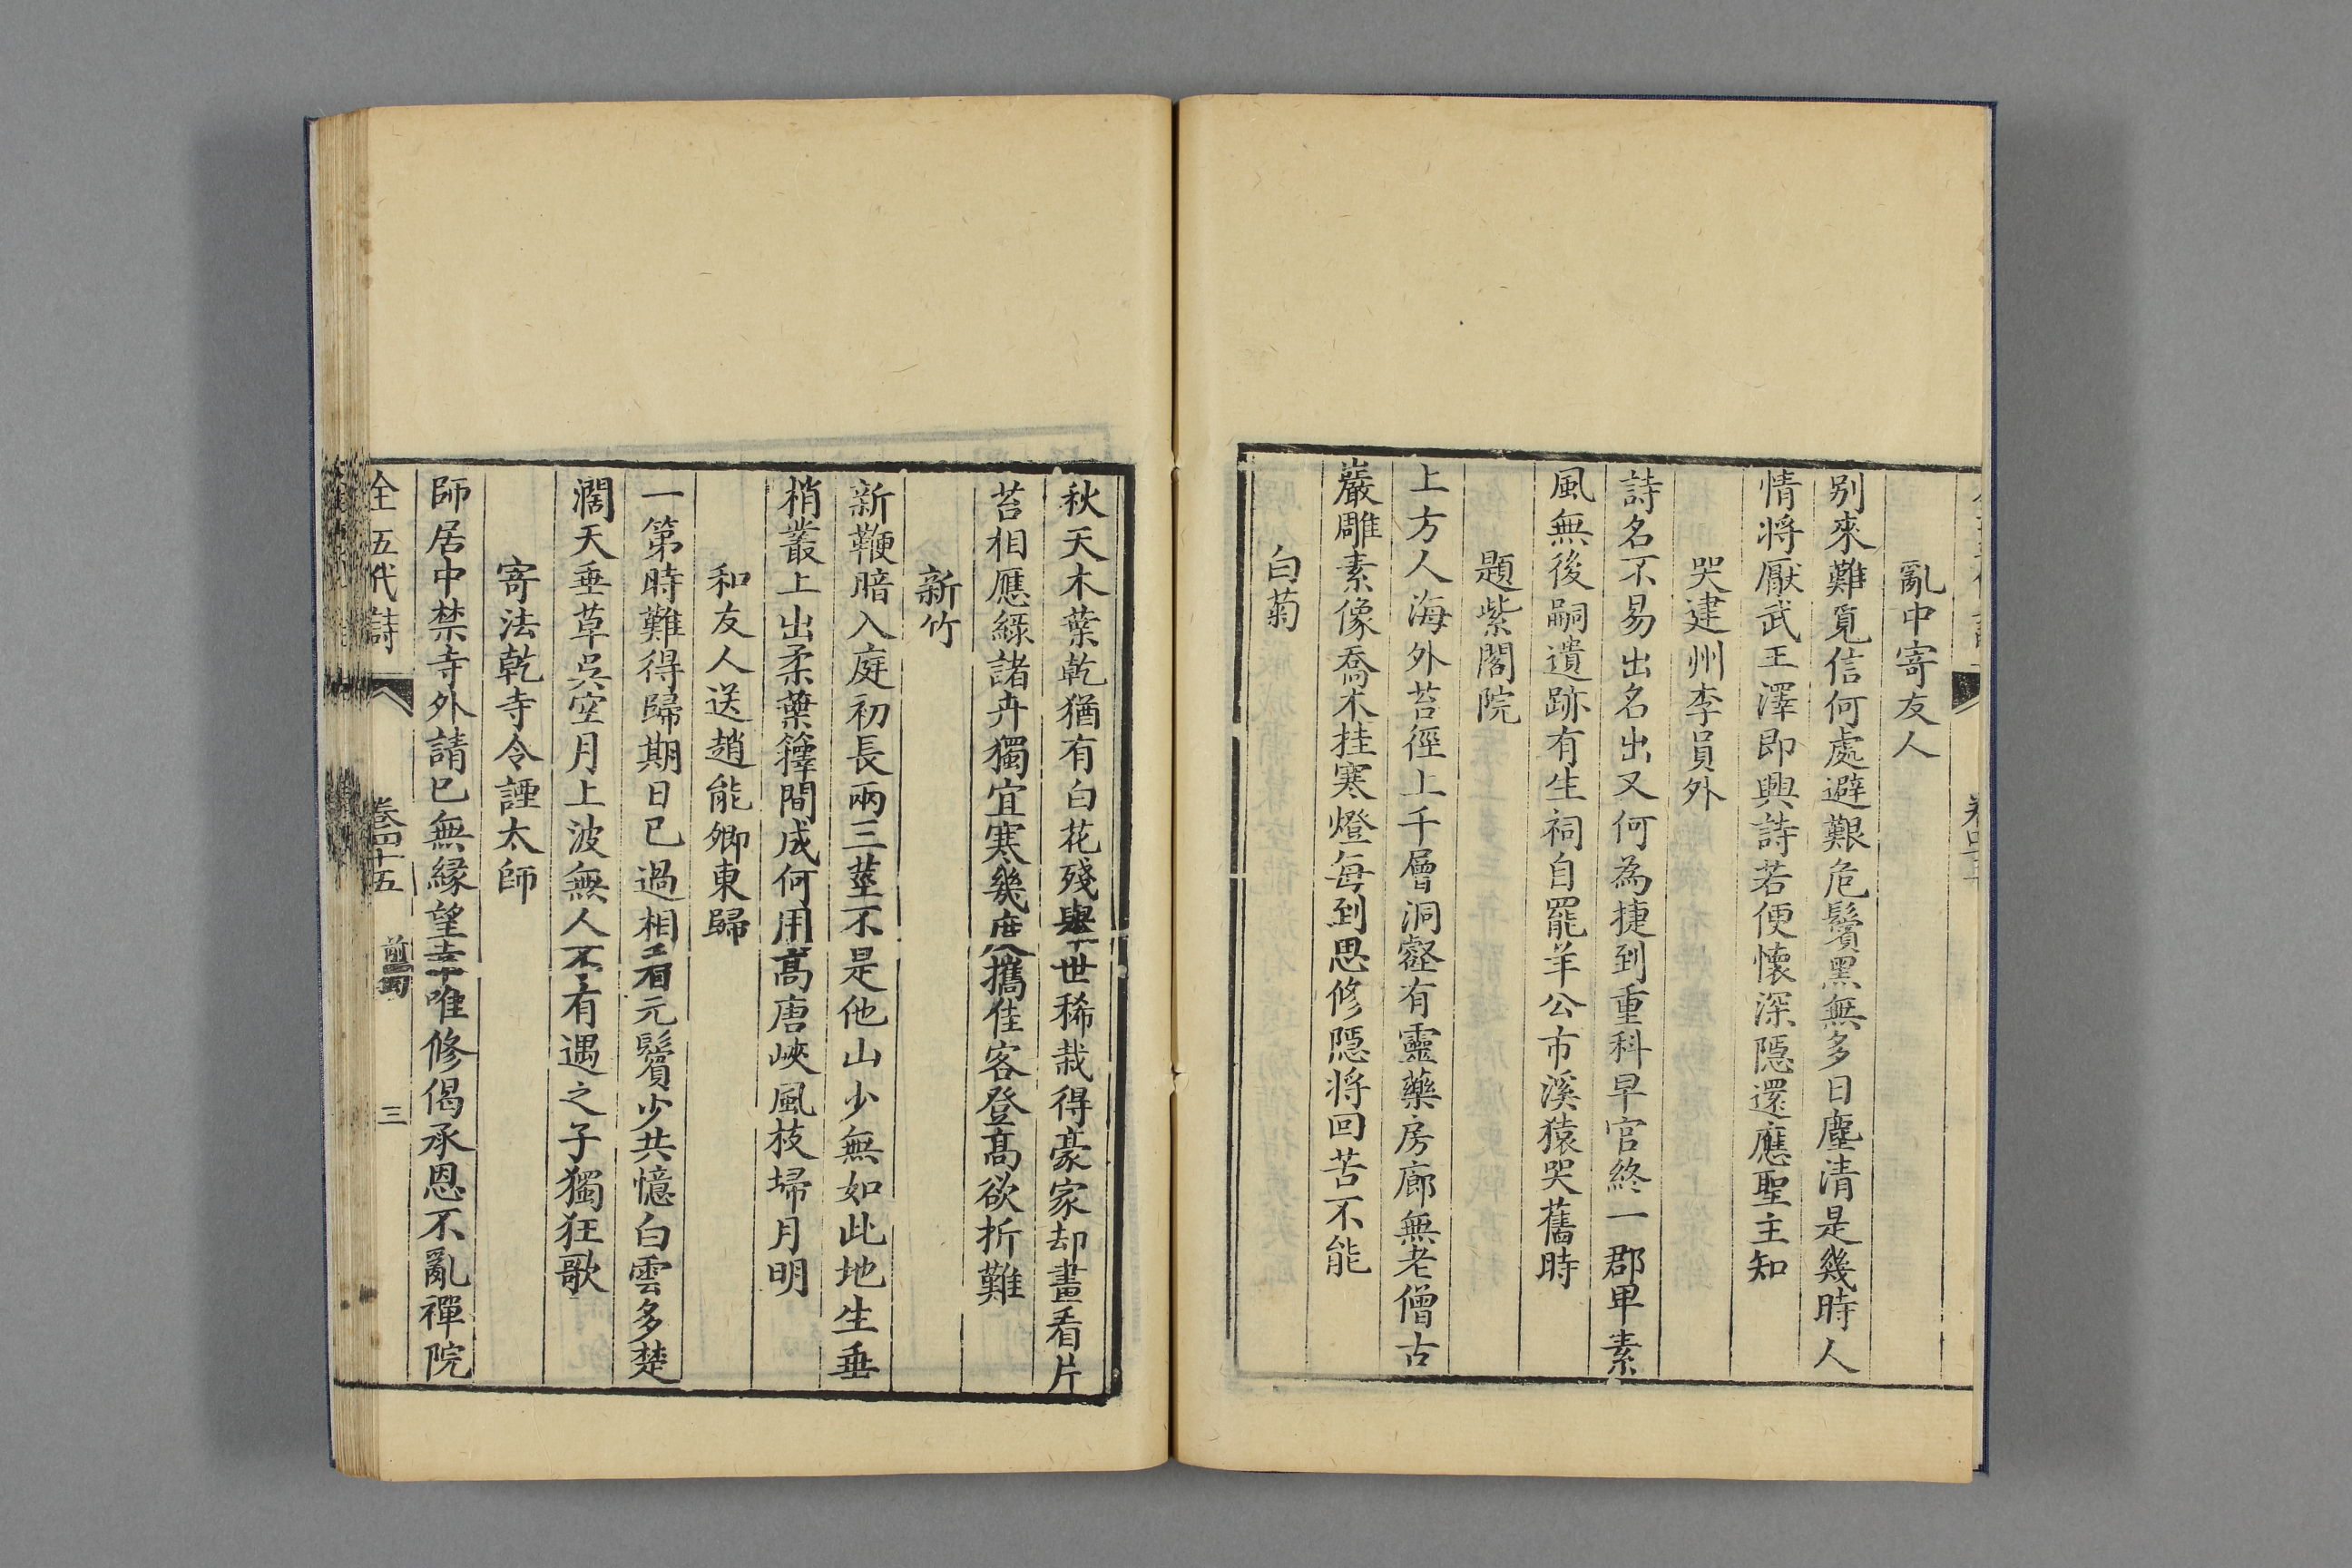 亂中寄友人
別來難覓信何處避艱危鬢黑無多日塵清是幾時人
情將厭武王澤即興詩若便懷深隱還應聖主知
哭建州李員外
詩名不易出名出又何為捷到重科早官終一郡卑素
風無後嗣遺跡有生祠自罷羊公市溪猿哭舊時
題紫閣院
上方人海外苔徑上千層洞壑有靈藥房廊無老僧古
巖雕素像喬木挂寒燈每到思修隱將回苦不能
白菊
秋天木葉乾猶有白花殘舉世稀栽得豪家却畫看片
苔相應綠諸卉獨宜寒幾度攜佳客登高欲折難
新竹
新鞭暗入庭初長兩三莖不是他山少無如此地生垂
梢叢上出柔葉籜間成何用高唐峽風枝埽月明
和友人送趙能卿東歸
一第時難得歸期日已過相看元鬢少共憶白雲多楚
濶天垂草吳空月上波無人不有遇之子獨狂歌
寄法乾寺令諲太師
師居中禁寺外請已無緣望幸唯修偈承恩不亂禪院
全五代詩
卷四十五
前蜀
三